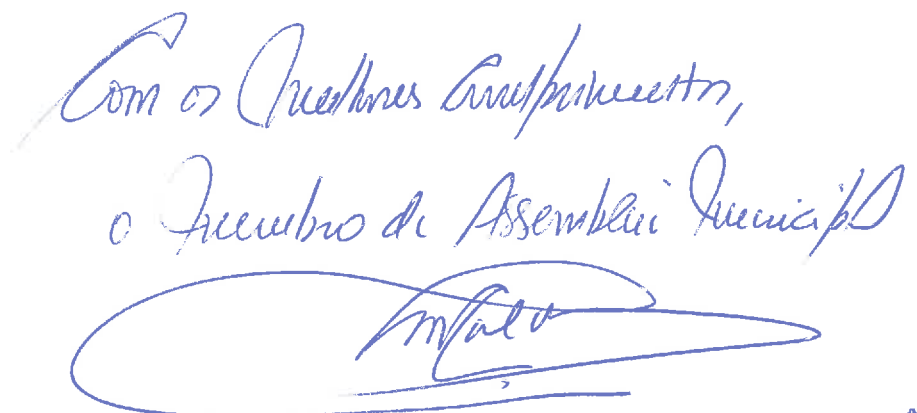 Com os melhores cumprimentos,
o membro da Assembleia Municipal